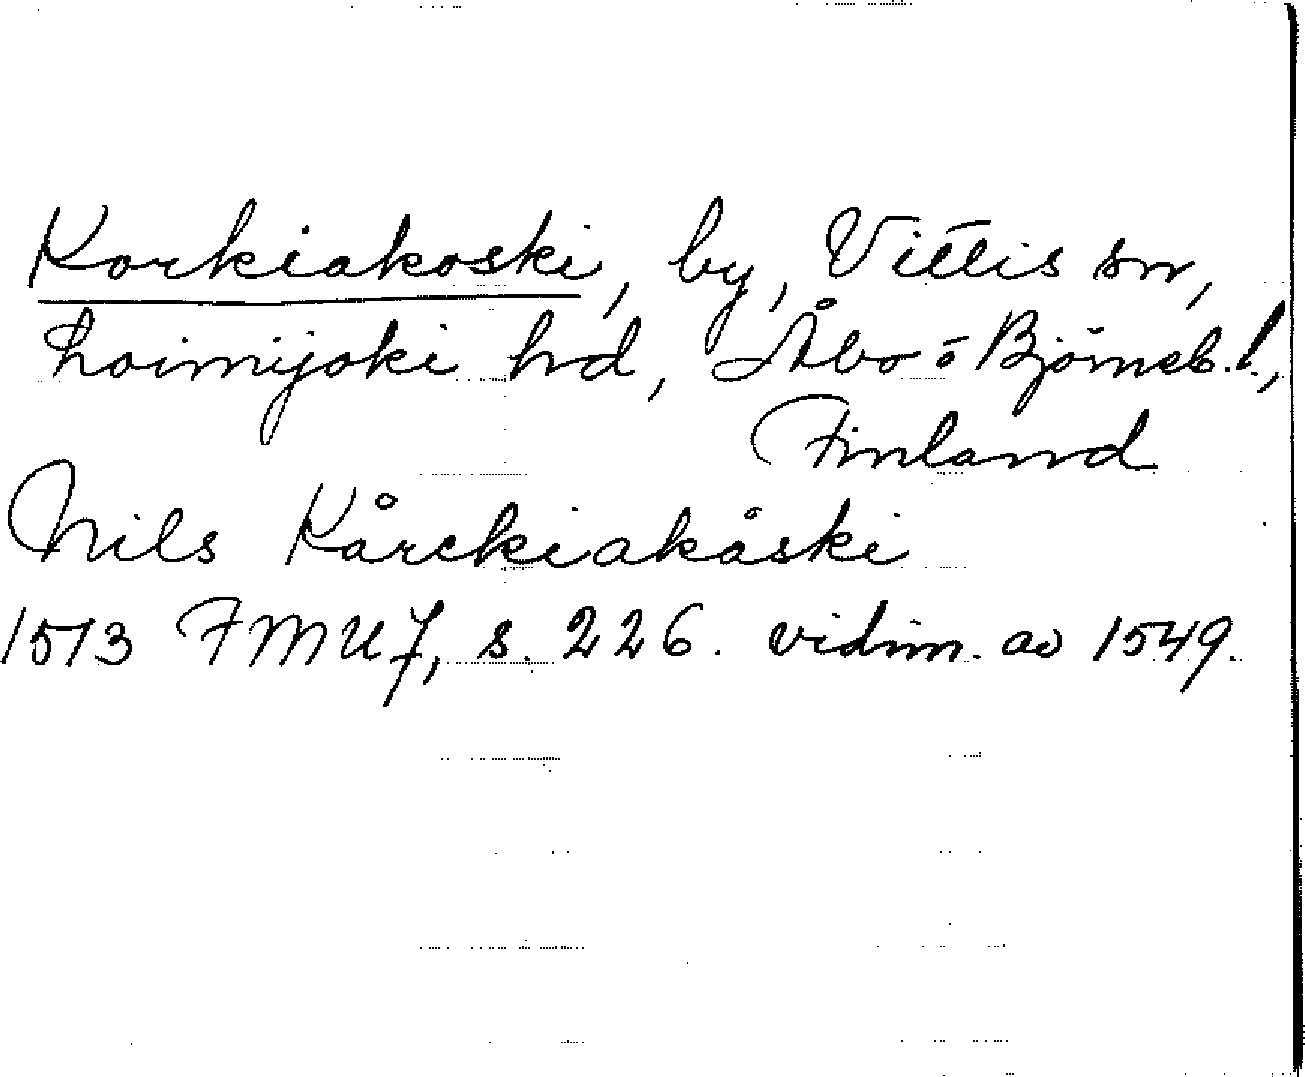 Korkiakoski, by, Vittis sn,
Loimijoki hd, Åbo o Björneb. l.,
Finland
Nils Kårckiakåski
1513 FMU 7, s. 226. vidim. av 1549.